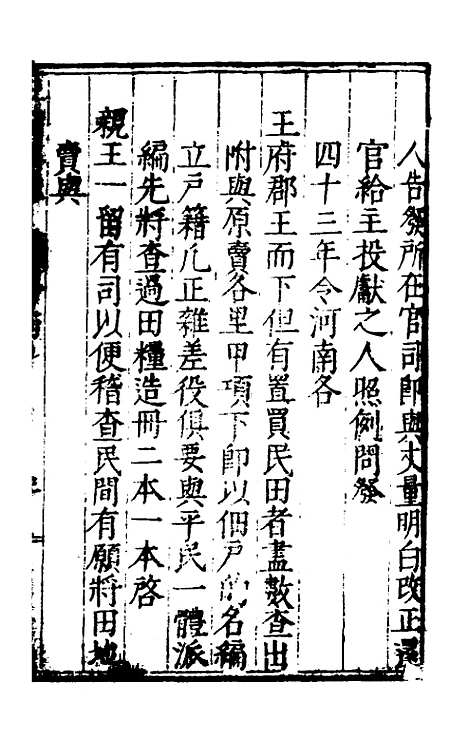 人告發所在官司即與丈量明白改正還
官給主投獻之人照例問發
四十三年令河南各
王府郡王而下但有置買民田者盡數查出
附與原賣各里甲項下即以佃戶的名編
立戶籍凡正雜差役俱要與平民一體派
編先將查過田糧造冊二本一本啓
親王一留有司以便稽查民間有願將田地
賣與